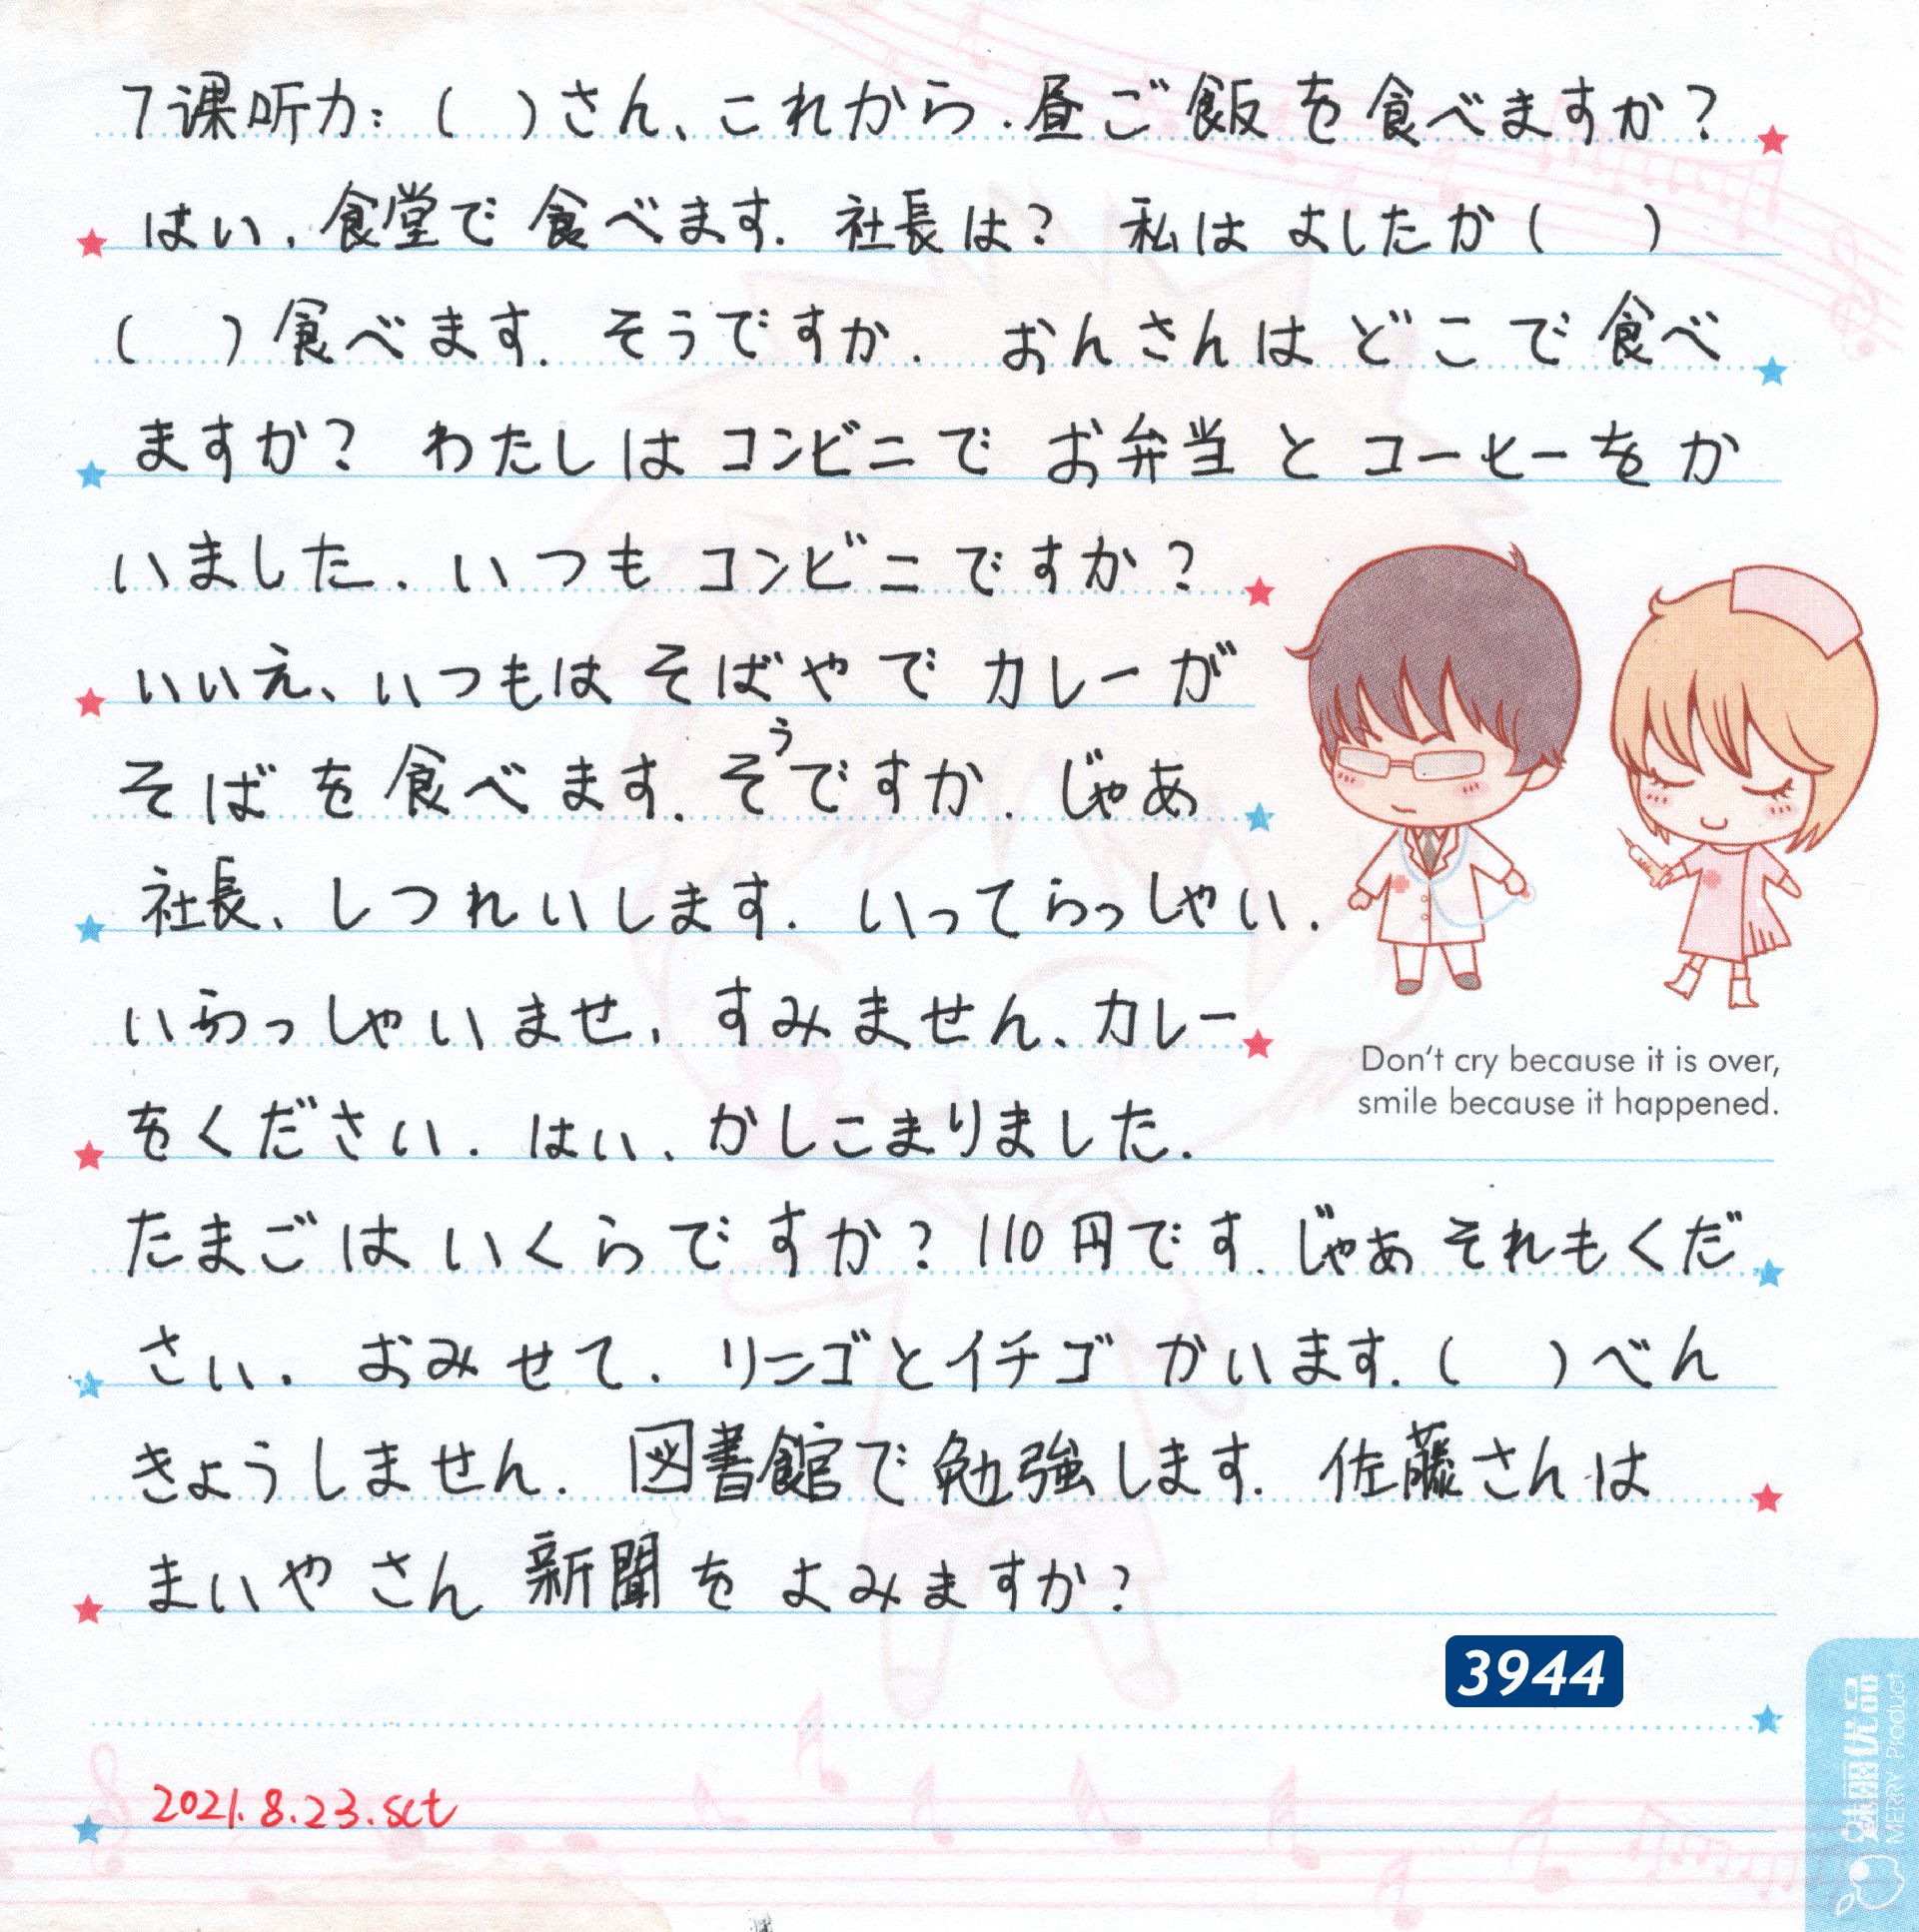 7课听力：（ ）さん、これから．昼ご飯を食べますか？
はい、食堂で食べます．社長は？ 私はよしたか（ ）
（ ）食べます．そうですか． おんさんはどこで食べ
ますか？ わたしはコンビニでお弁当とコーヒーをか
いました．いつもコンビニですか？
いいえ、いつもはそばやでカレーが
そばを食べます．そうですか．じゃあ
社長、しつれいします．いってらっしゃい．
いらっしゃいませ、すみません、カレー
をください．はい、かしこまりました．
たまごはいくらですか？110円です．じゃあそれもくだ
さい．おみせて．リンゴとイチゴかいます．（ ）べん
きょうしません．図書館で勉強します．佐藤さんは
まいやさん新聞をよみますか？
Don't cry because it is over,
smile because it happened.
3944
2021.8.23.sct
魅丽优品
MERRY Product